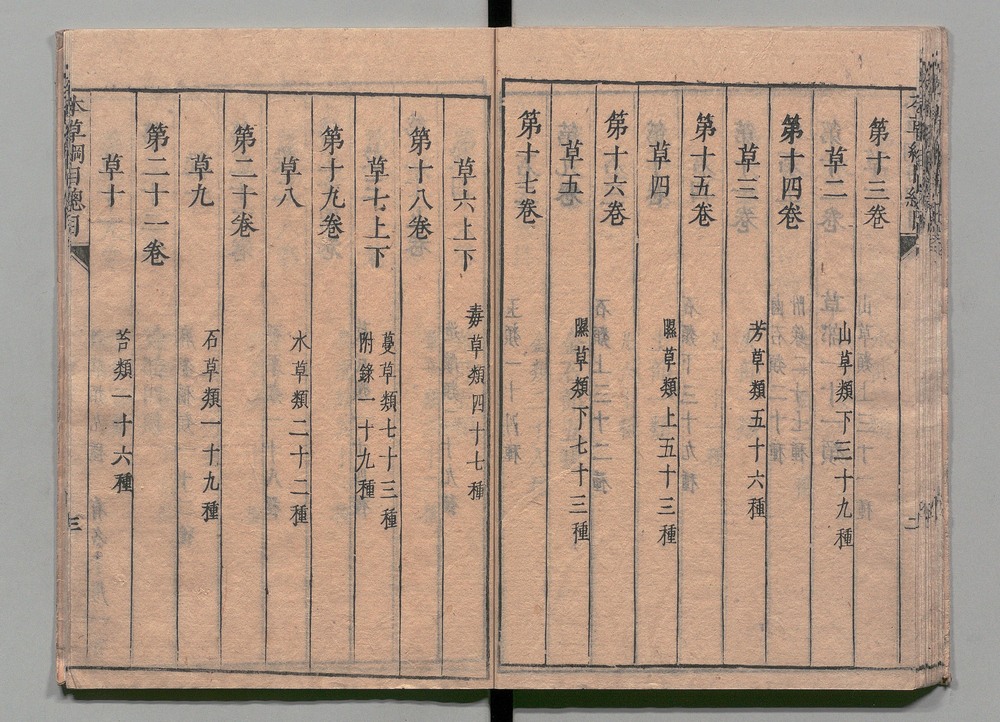 第十三卷
草二
山草類下三十九種
第十四卷
草三
芳草類五十六種
第十五卷
草四
隰草類上五十三種
第十六卷
草五
隰草類下七十三種
第十七卷
草六上下
毒草類四十七種
第十八卷
草七上下
蔓草類七十三種
附錄一十九種
第十九卷
草八
水草類二十二種
第二十卷
草九
石草類一十九種
第二十一卷
草十
苔類一十六種
本草綱目總目
三